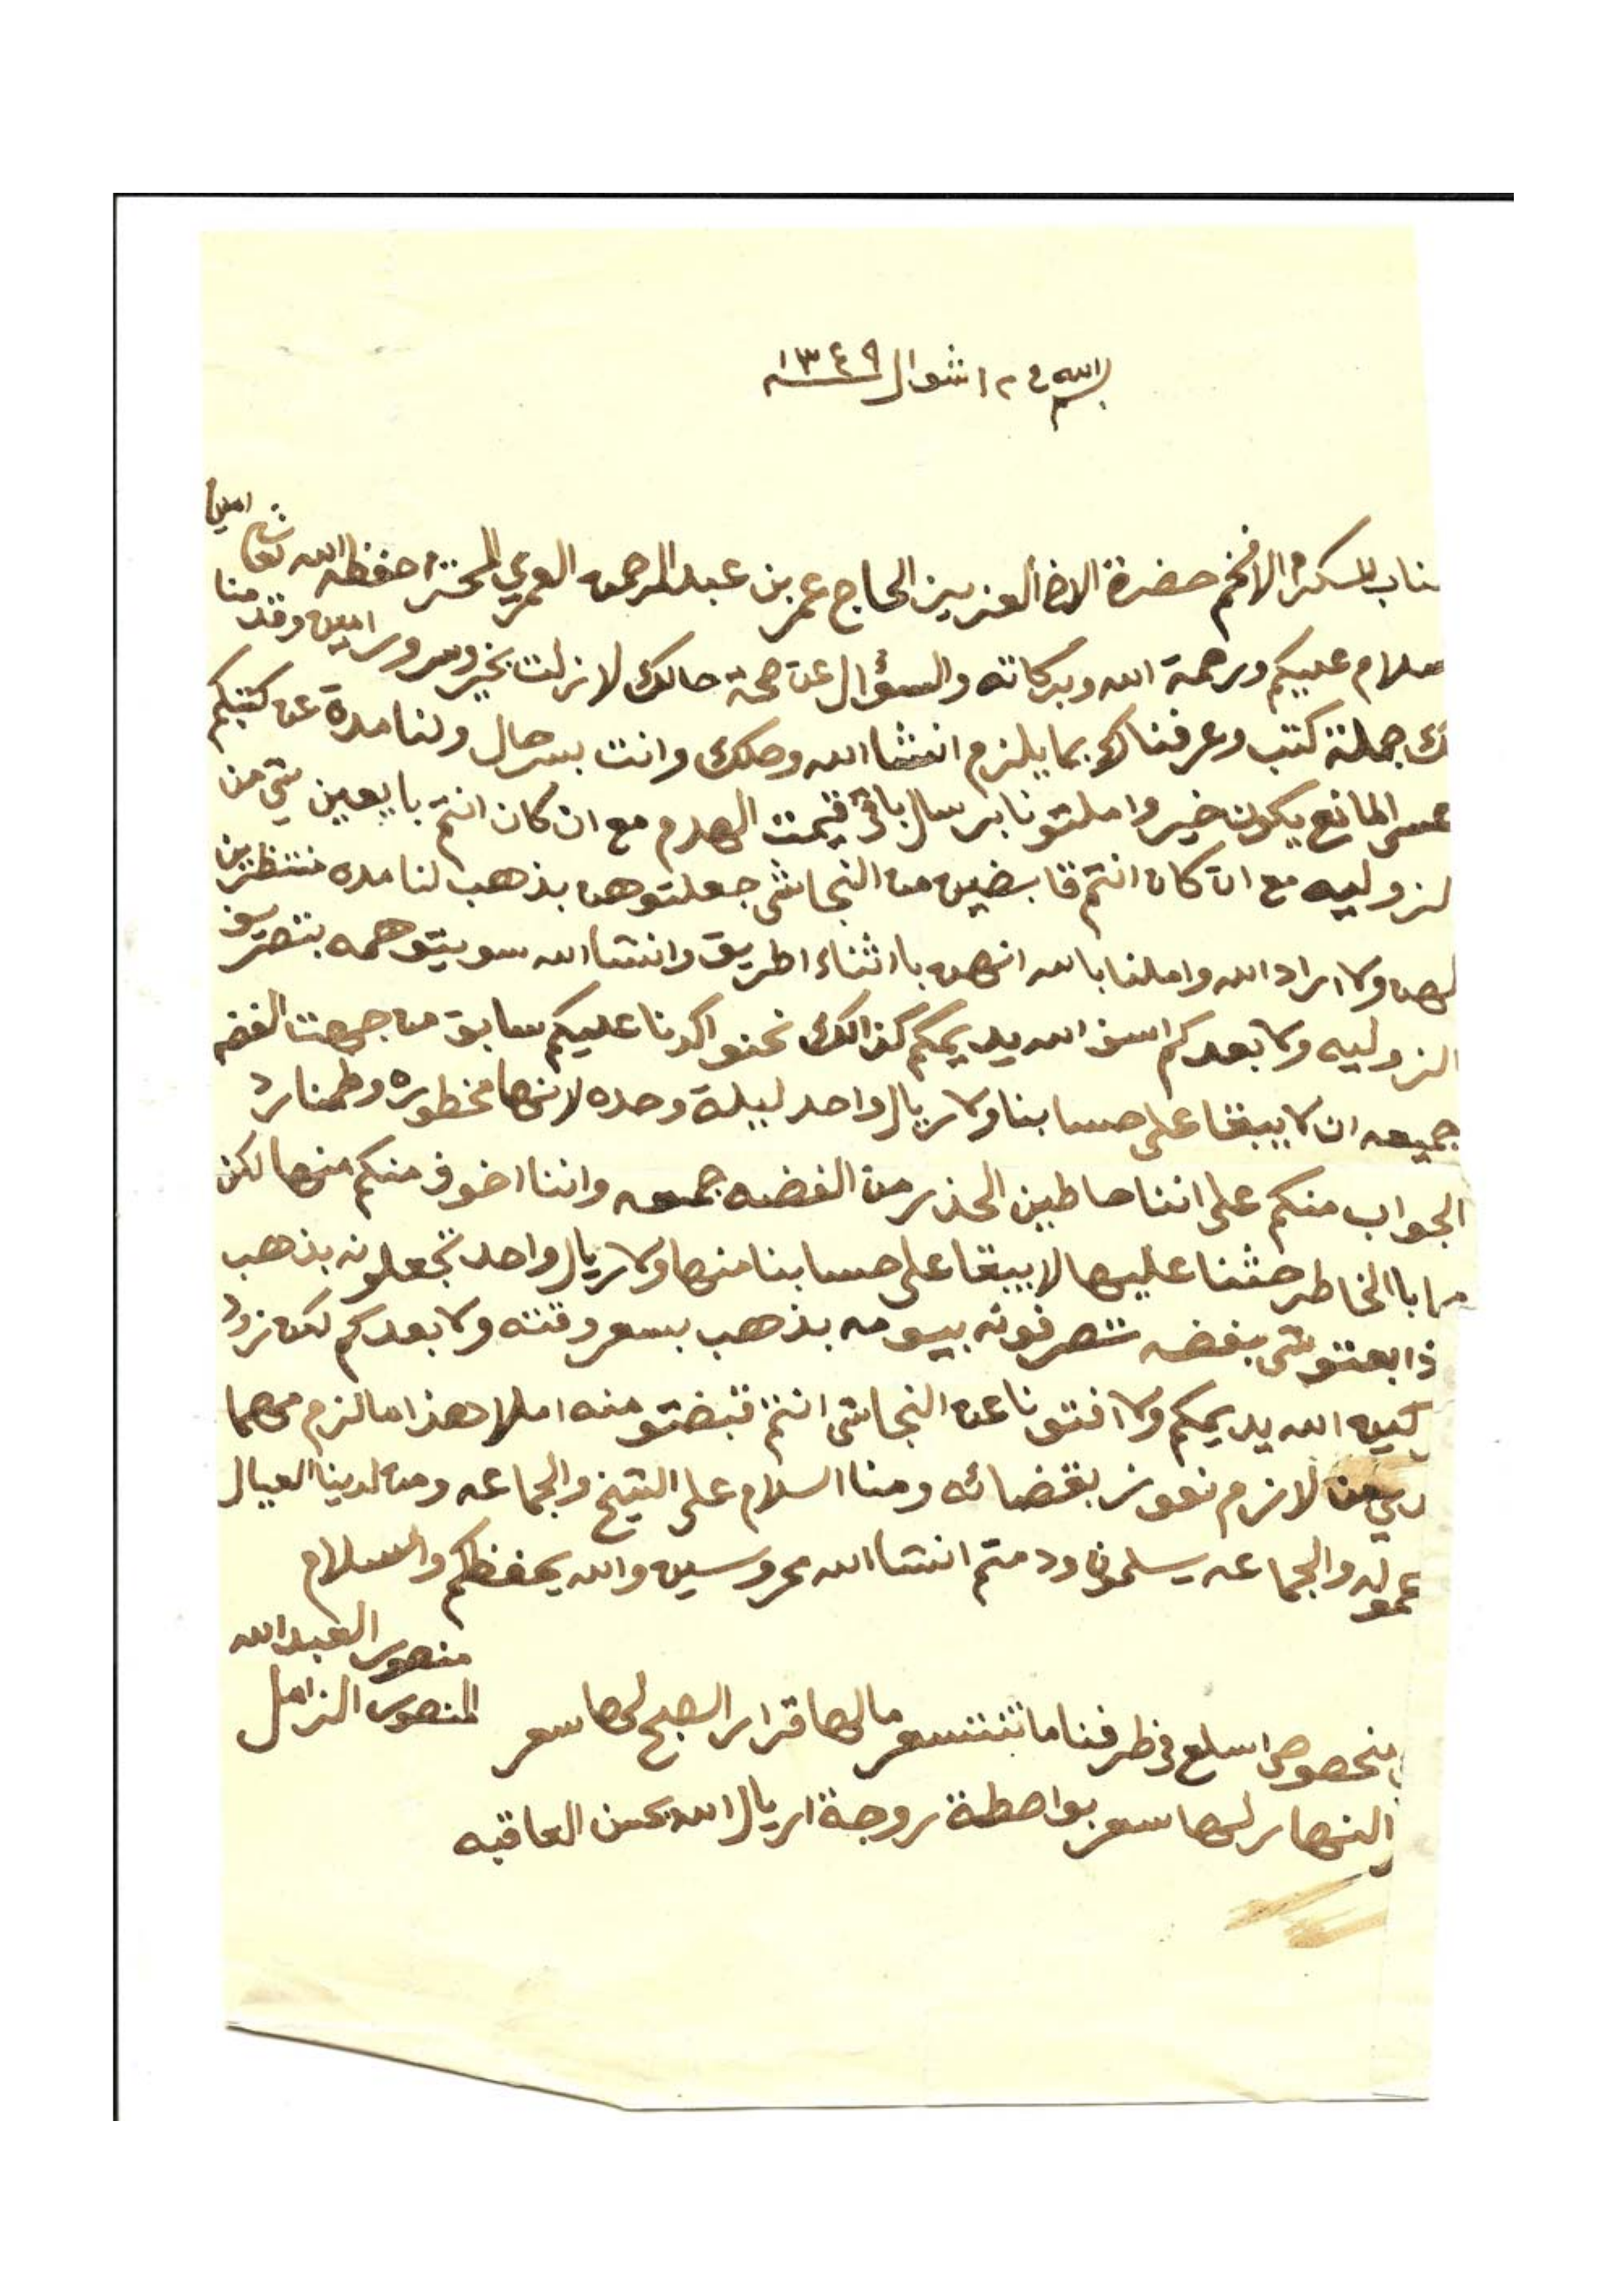 بسم الله في ٢ ١ شوال ١٣٤٩
جناب المكرم الافخم حضرة الاخ العزيز الحاج عمر بن عبد الرحمن العمري المحترم حفظه الله تعالى امين
سلام عليكم ورحمة الله وبركاته والسؤال عن صحة حالك لا زلت بخير وسرور امين وقد منا
لك جملة كتب وعرفناك بما يلزم انشا الله وصلك وانت بسر حال ولنا مدة عن كتبكم
عسى المانع يكون خير واملتونا برسال باقي قيمت الهدم مع ان كان انتم بايعين شي من
لزوليه مع ان كان انتم قابضين من النجاشي جعلتوهن بذهب لنا مده منتظرين
لهن ولا اراد الله واملنا بالله انهن باثناء اطريق وانشا الله سويتو همه بتصريف
الزوليه ولا بعدكم اسف الله يديمكم كذالك نحنو اكدنا عليكم سابق من جهت الفضه
جميعه ان لا يبقا على حسابنا ولا ريال واحد ليلة وحده لانها مخطوره وطمنا رد
الجواب منكم على اننا حاطين الحذر من الفضه جميعه واننا اخوف منكم منها لكن
مما بالخاطر حثنا عليها لا يبقا على حسابنا منها ولا ريال واحد تجعلونه بذهب
ذا بعتو شي بفضه تصرفونه بيومه بذهب بسعر وقته ولا بعدكم لكن زود
الله يديمكم ولا افتونا عن النجاشي انتم قبضتو منه املا هذا ما لزم مهما
من لازم نفوز بقضائه ومنا السلام على الشيخ والجماعه ومن لدينا العيال
حموله والجماعه يسلمون ودمتم انشا الله محروسين والله يحفظكم والسلام
منصور العبد الله
المنصور الزامل
بخصوص اسلع في طرفنا ما تتسعر ما لها قرار الصبح لها سعر
والنهار لها سعر بواصطة روجة اريال الله يحسن العاقبه